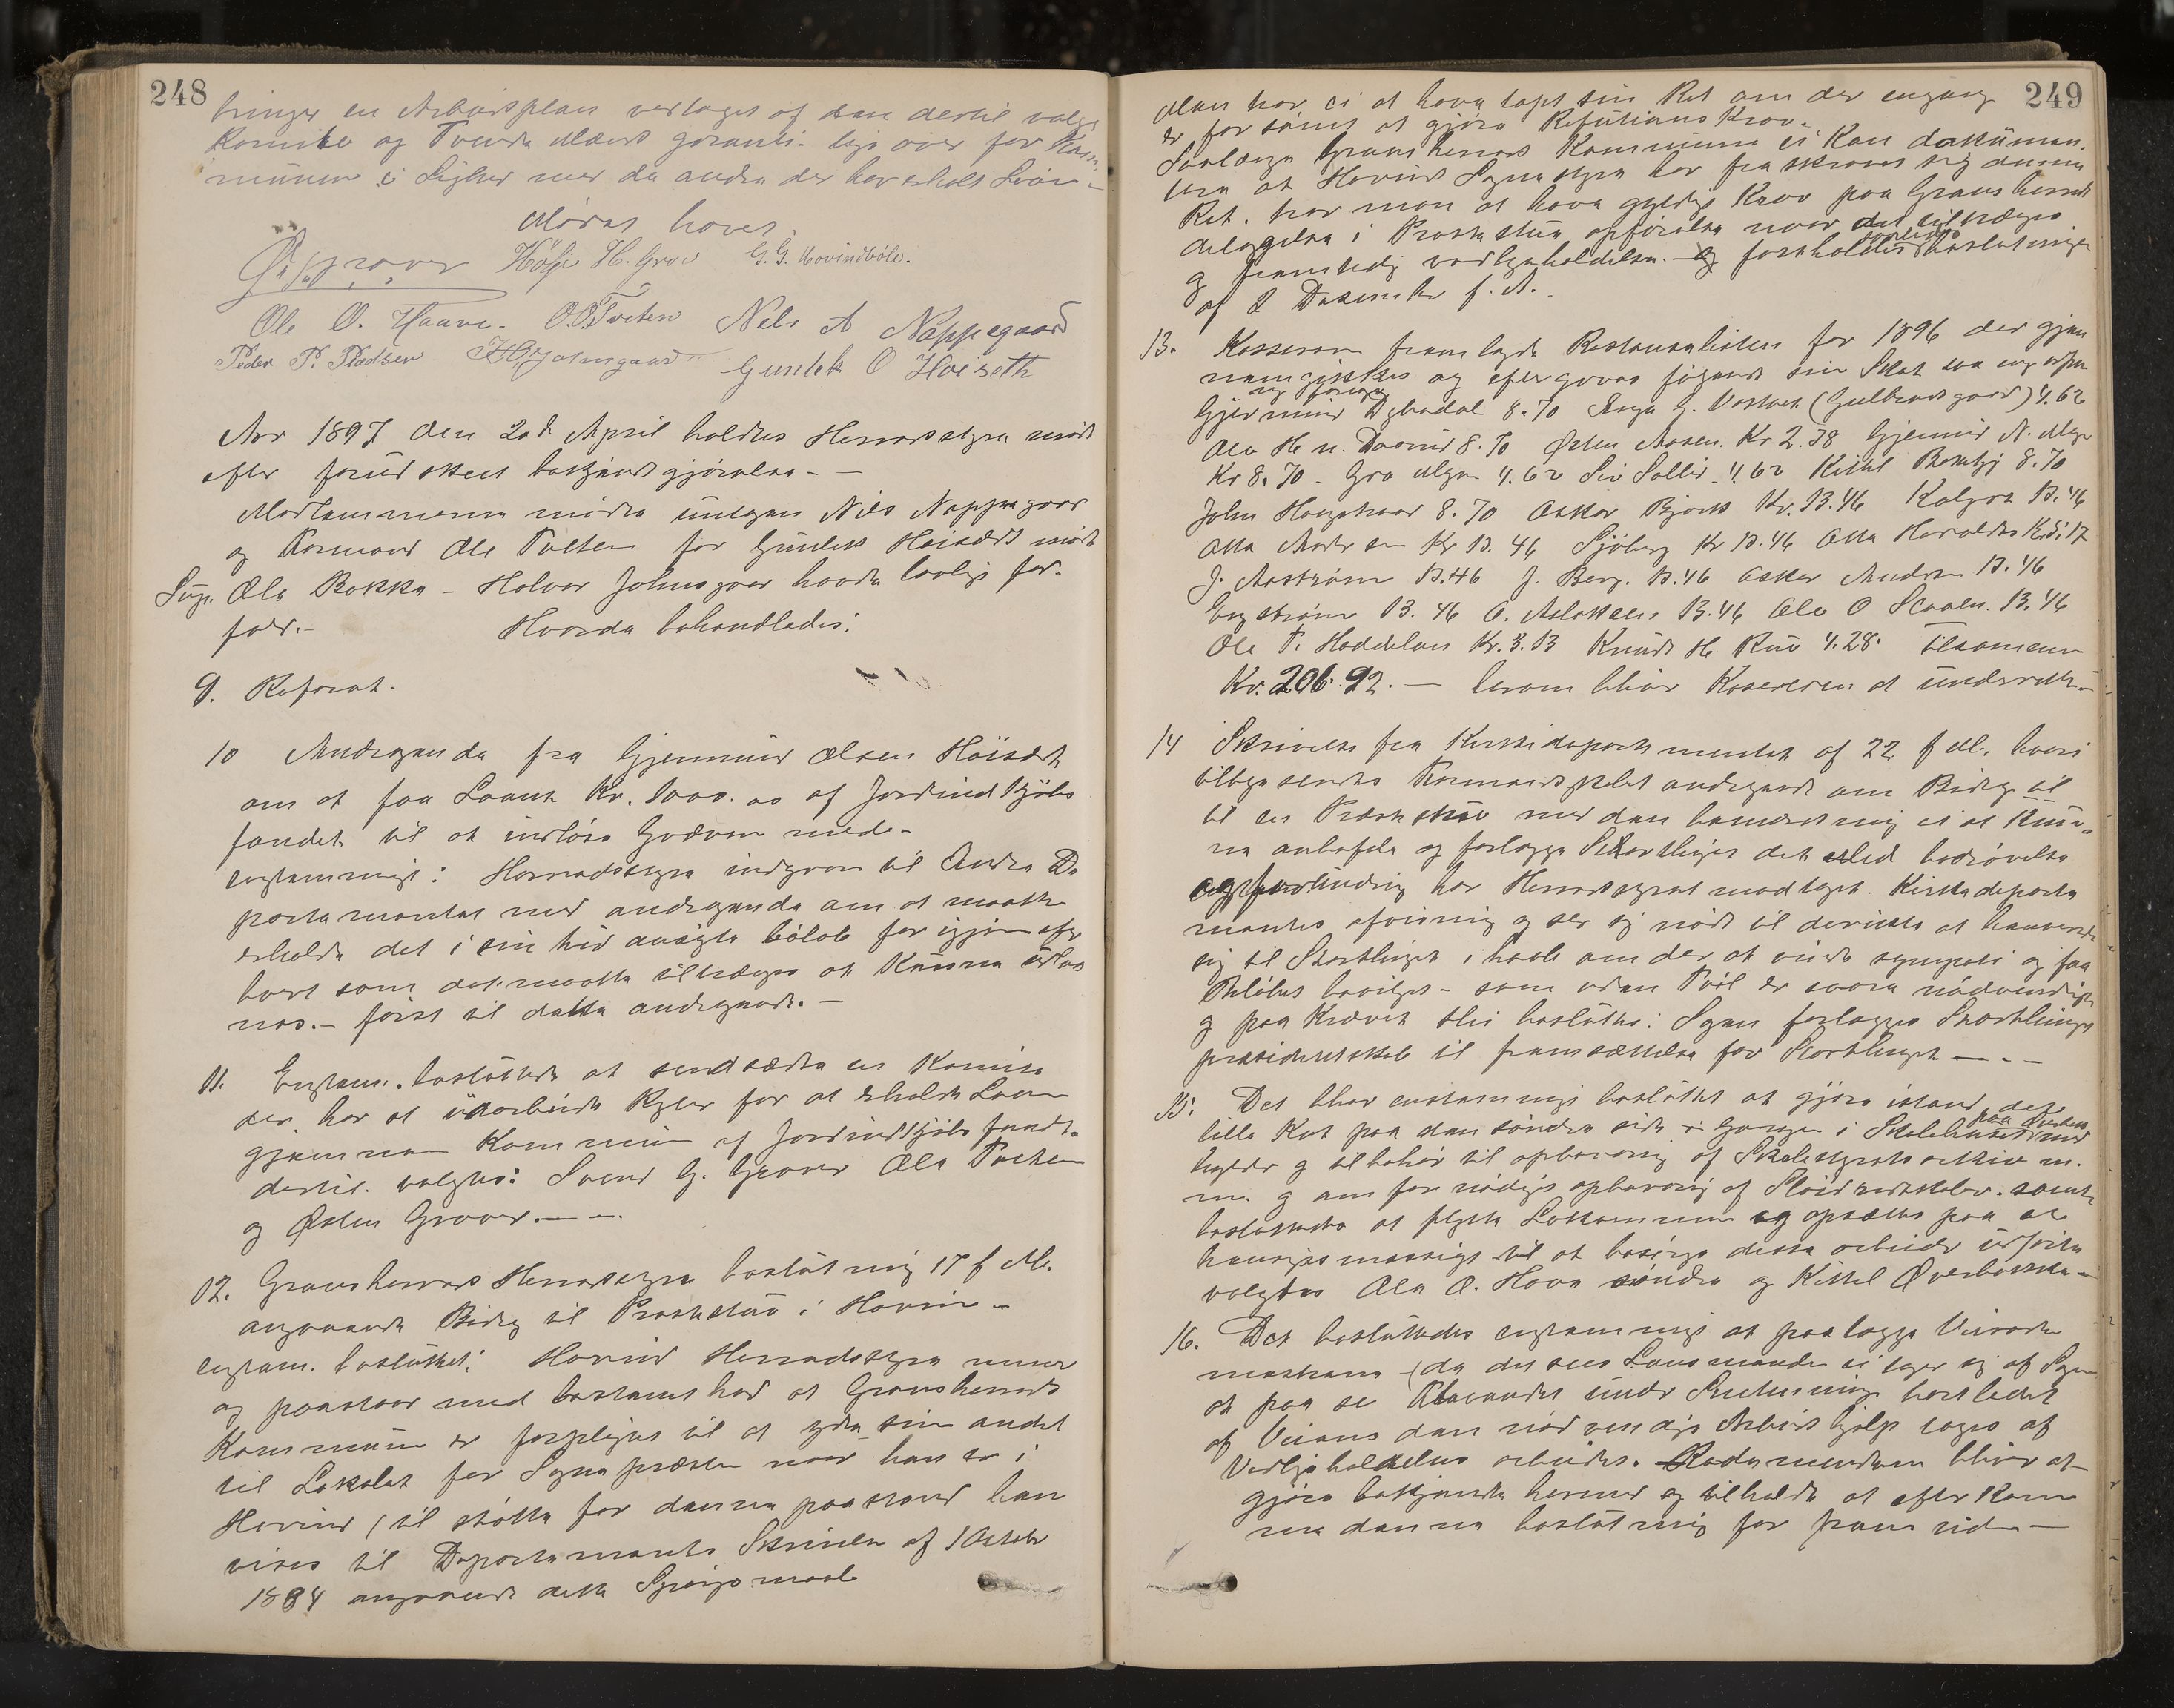 248
bringes en Arbeidsplan vedtaget af den dertil valgte
Komite og Tvende Mænds garanti. lige over for Kom-
munen i Lighed med de andre der har erholdt Laan -
Mødet hævet.
Ø. S. Grover Hölje H. Grov G. G. Hovindbøle.
Ole O. Haave. O. O. Tveten Nels A Nappegaard
Peder P. Pladsen H. H. Johnsgaard Gunlek O Hoiseth
Aar 1897 den 20de April holdtes Herredsstyre møde
efter forud skeet bekjendtgjørelse. -
Medlemmerne mødte undtagen Nils Nappegaar
og Formand Ole Tveten for Gunlek Høisædt mødte
Sup. Ole Bakka - Halvor Johnsgaar havde lovlig for-
fald. - Hvorda behandledes:
9. Referat.
10 Andragende fra Gjermund Olsen Høisædt
om at faa Laane Kr. 1000.00 af Jordindkjøbs
fondet til at indløse Gården med.
enstemmigt: Herredsstyre indgaar til Indre De
partementet med andragende om at maatte
erholde det i sin tid ansøgte beløb for igjen efter
hvert som det maatte tiltrænges at kunne udlaa
nes. - först til dette andragende. -
11. Enstem. besluttedes at nedsædte en Komite
der har at udarbeide Regler for at erholde Laan
gjennem Kommunen af Jordindkjøbs fondet.
dertil valgtes: Svend G. Grover Ole Tveten
og Østen Grover. - -
12. Gransherreds Herredsstyre beslutning 17 f. M.
angaaende Bidrag til Præstestue i Hovin -
enstem. besluttet: Hovind Herredsstyre mener
og paastaar med bestemthed at Gransherreds
Kommune er forpligtet til at yde sin andel
til Lokalet for Sogne præsten naar han er i
Hovind (til støtte for denne paastand hen
vises til Departements Skrivelse af 1 October
1884 angaaende dette Spørgsmaal
249
Man har ei at have tapt sin Ret om der engang
er forsømt at gjøre Refusions Krav.
Saalænge Gransherreds Kommune ei kan dokumen-
tere at Hovind Sognestyre har fraskrevet sig denne
Ret. har man at have gyldig Krav paa Gransherreds
delagelse i Præstestue opførelse naar det tiltrænges
og fremtidig vedligeholdelse. og fastholdes saaledes beslutningen
af 2 Desember f. A.
13. Kassereren fremlagde Restanselisten for 1896 der gjen
nemgikkes og eftergaves følgende sin Skat saa vidt
Gjermund Dybadal 8.70 Aage G. Vastveit (Gulbrandsgaard) 4.62
Ole H. n. Daavid 8.70 Østen Aasen. Kr 2.38 Gjermund N. Mgr
Kr 8.70 - Gro Mgn 4.62 Siv Sollid - 4.62 Kittil Bakhej 8.70
John Haugehaar 8.70 Oskar Bjørk Kr. 13.46 Kalgrav 13.46
Otto Andersen Kr 13.46 Sjöberg Kr 13.46 Otto Haraldsen Kr 5.17
J. Aastrøm 13.46 J. Berg. 13.46 Oskar Andersen 13.46
Engstrøm 13.46 O. Aslaksen 13.46 Ole O Skaalen. 13.46
Ole T. Haddeland Kr. 3.13 Knudt H. Rue 4.28. tilsammen
Kr. 206.92. - herom bliver Kasereren at underrette -
14 Skrivelse fra Kirkedepartementet af 22 f M. hvori
tilbagesendes Formandskabet andragende om Bidrag til
til en Præstestue med den bemærkning ei at kun-
ne anbefale og forlægge Storthinget det Med bedrøvelse
og forundring har Herredsstyret modtaget Kirkedeparte
mentets afvisning og ser sig nødt til derirekte at henvende
sig til Storthinget i haab om der at vinde sympati og faa
Beløbet bevilget - som uden Tvil er svære nødvendigt
og paa Krævet blir besluttet: Sagen forlægges Storthings
præsidentskab til fremsættelse for Storthinget - . -
15. Det blev enstemmigt besluttet at gjøre istand det
lille Kot paa den søndre side i Gangen i Skolehuset paa Kirken med
hylder og tilbehør til opbevaring af Skolestyrets arkiv m.
m. og om for nødigt opbevaring af Sløidredskaber. samt
besluttedes at flytte Lokummene og opsættes paa et
hensigtsmæssigt til at besørge dette arbeide udført
valgtes Ole O. Hova søndre og Kittel Øverbakka -
16. Det besluttedes enstemmigt at paalægge Veirode
mestrene (da det sees Lensmanden ei tager sig af Sagen
at paa se Flaavandet under Snetuning bortledet
af Veiene den nødvendige Arbeidshjælp tages af
Vedligeholdelses arbeidet. Rodemesterne bliver at
gjøre bekjendte hermed og tilholdt at efterkom
me denne beslutning for fremtiden -